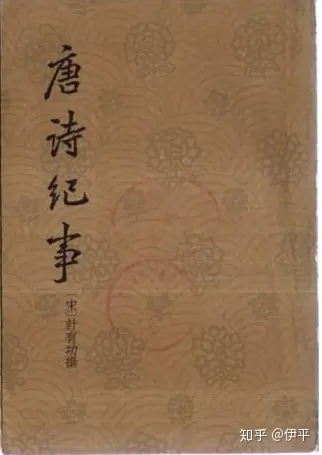 唐诗纪事
〔宋〕计有功撰
知乎 @伊平